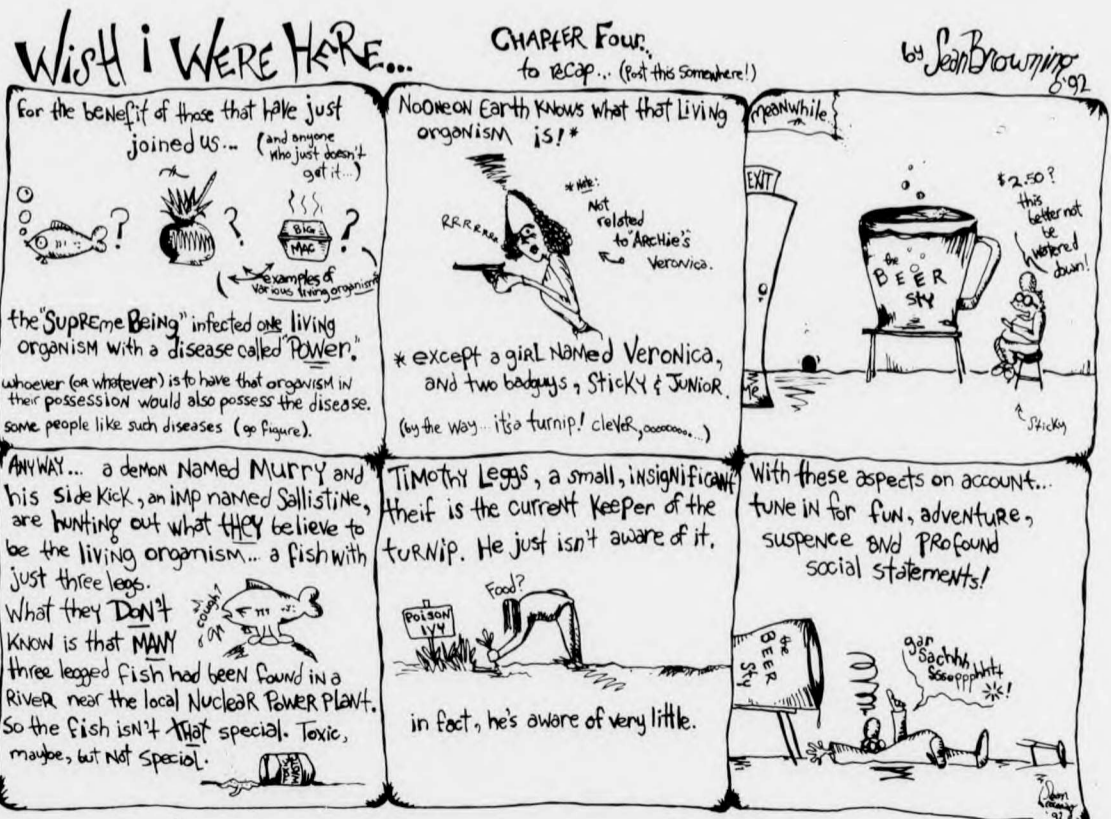 Wish i Were Here...
Chapter Four...
to recap... (Post this Somewhere!)
by Sean Browning
'92
For the benefit of those that have just
joined us...
(and anyone
who just doesn't
get it...)
?
?
BIG
MAC
?
(examples of
various living organisms)
the "Supreme Being" infected one living
organism with a disease called "Power."
whoever (or whatever) is to have that organism in
their possession would also possess the disease.
some people like such diseases (go figure).
No one on Earth knows what that Living
organism is!*
RRRrrrr
* Note:
Not
related
to "Archie's
Veronica.
* except a girl named Veronica,
and two badguys, Sticky & Junior.
(by the way... it's a turnip! clever, oooooooo...)
meanwhile
EXIT
the
BEER
Sty
$2.50?
this
better not
be
watered
down!
Sticky
Anyway... a demon named Murry and
his side kick, an imp named Sallistine,
are hunting out what they believe to
be the living organism... a fish with
just three legs.
What they DON'T
know is that MANY
cough!
three legged fish had been found in a
River near the local Nuclear Power Plant.
So the fish isn't that special. Toxic,
maybe, but not special.
Timothy Leggs, a small, insignificant
theif is the current keeper of the
turnip. He just isn't aware of it.
Food?
POISON
IVY
in fact, he's aware of very little.
With these aspects on account...
tune in for fun, adventure,
suspence and profound
social statements!
the
BEER
Sty
gar
Sachhh
Sssoppphhtt
!
'92